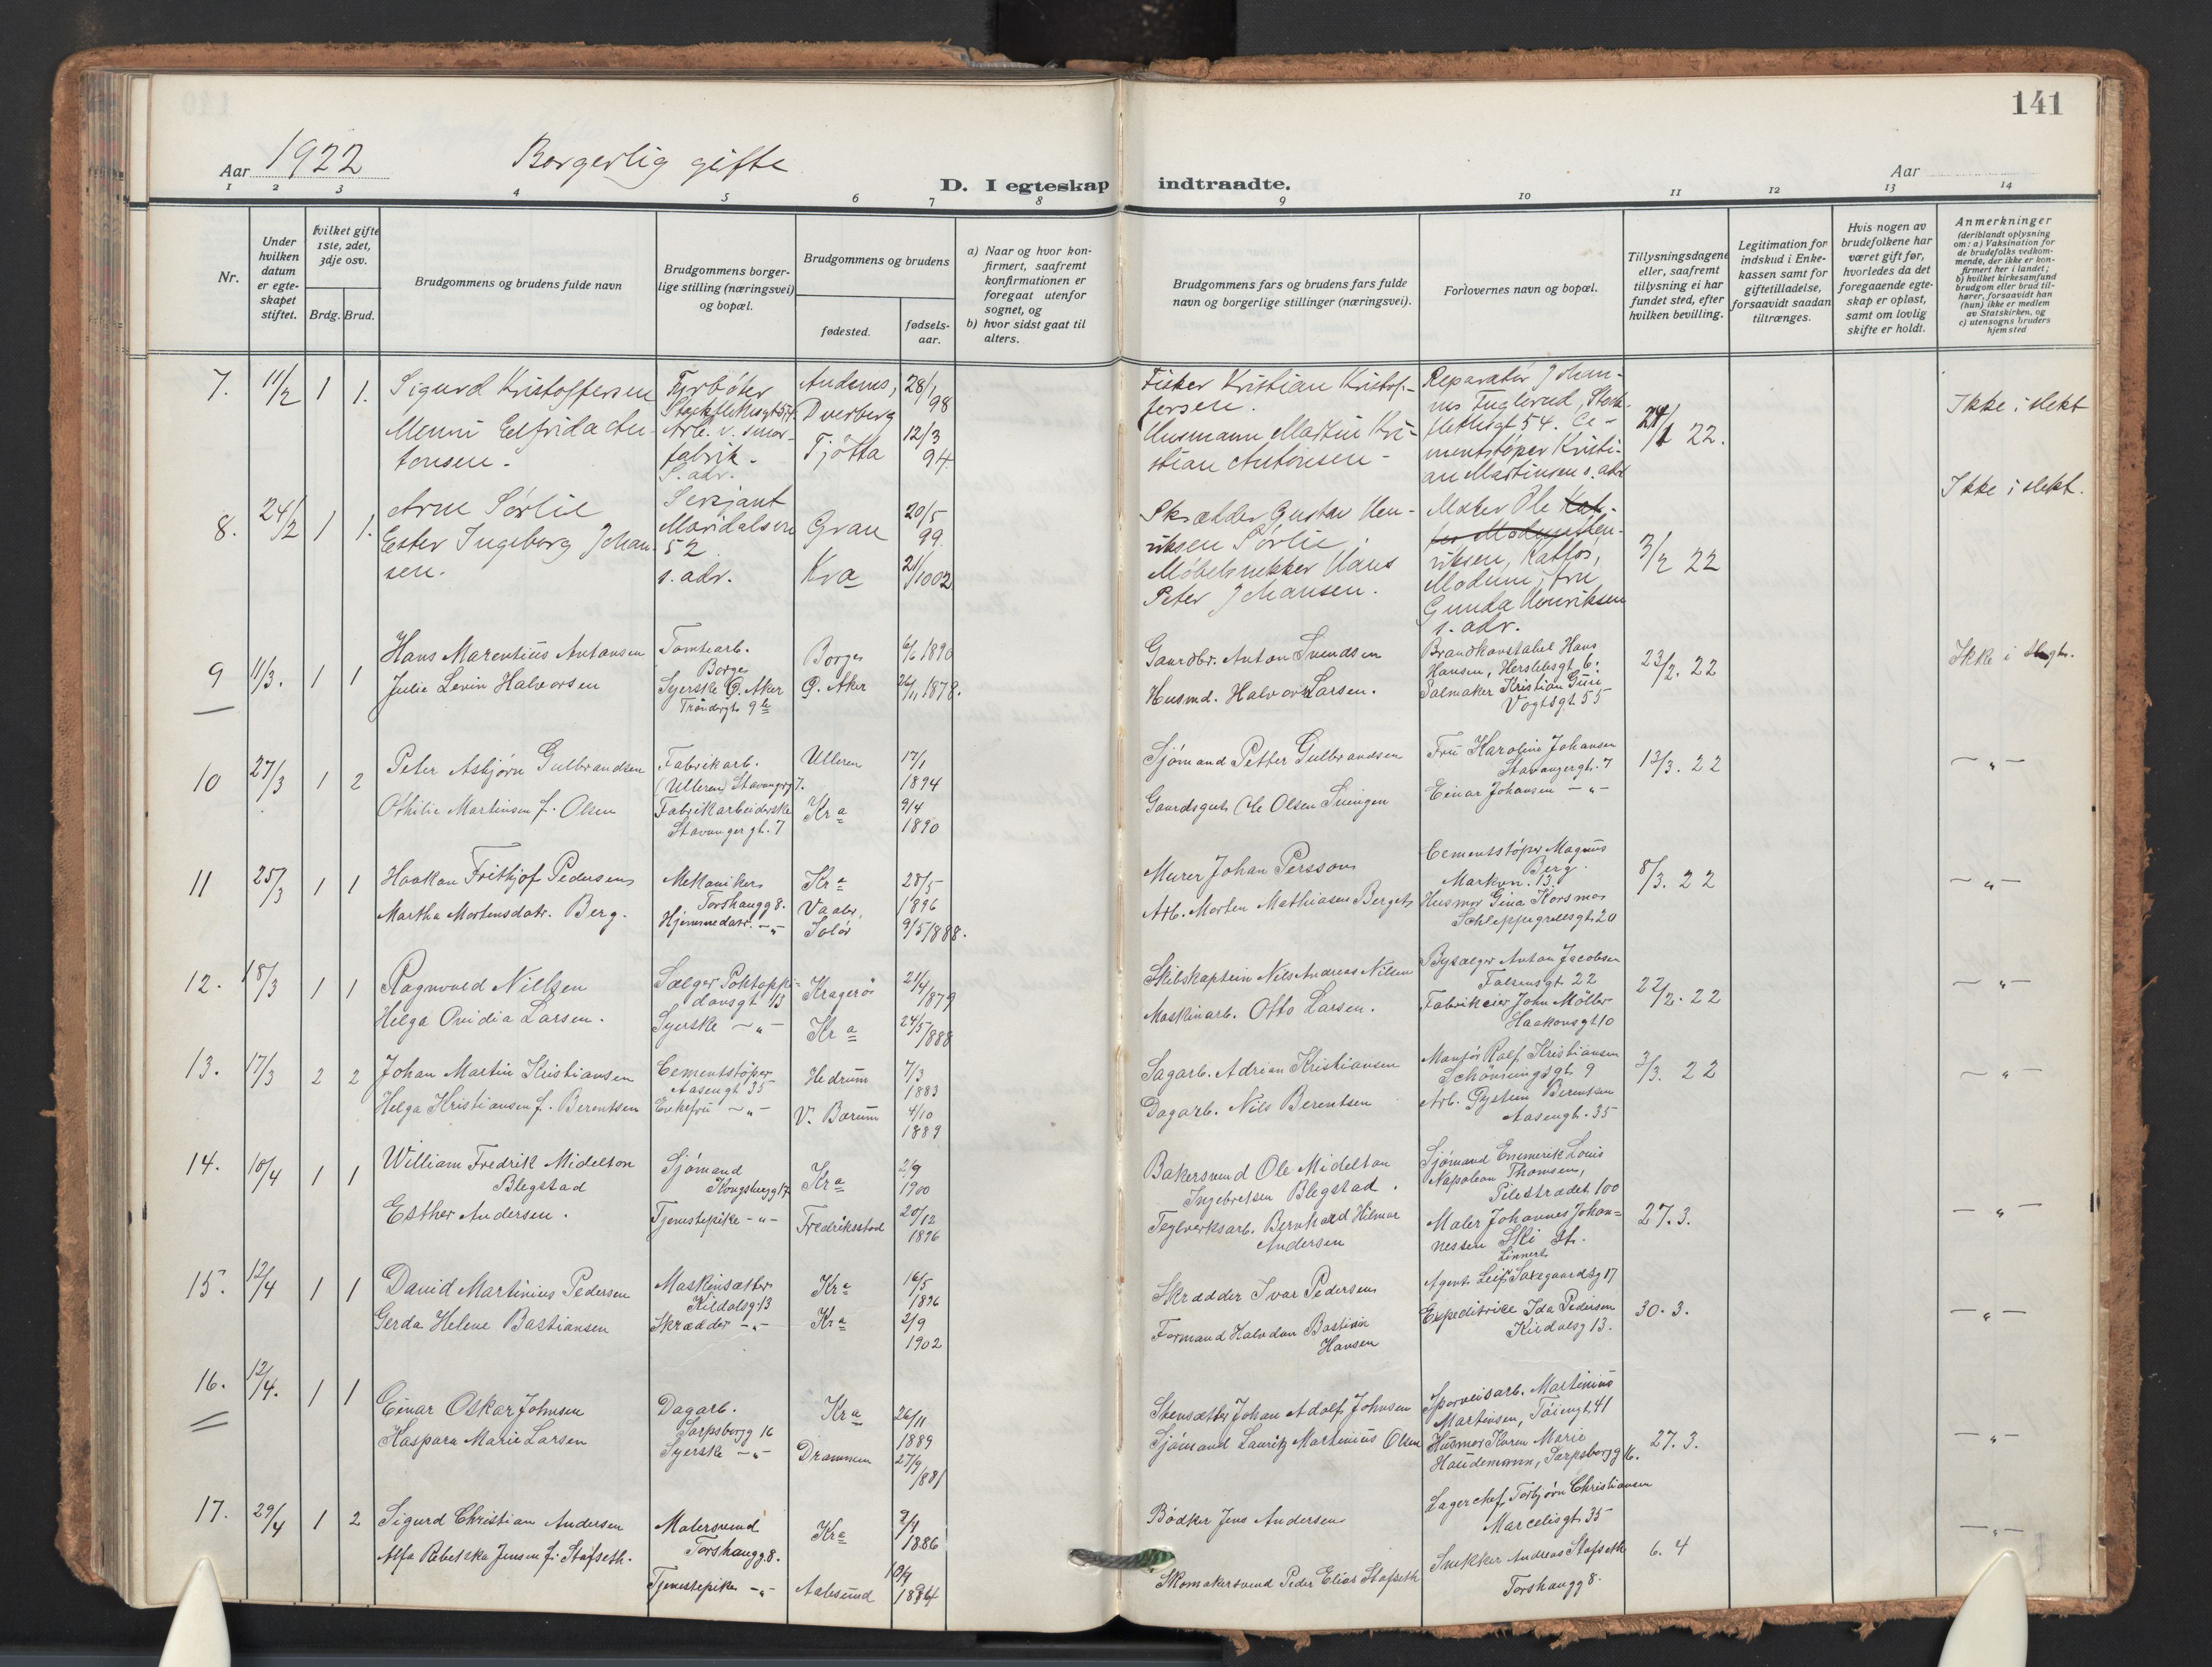 141
Aar 1922 Borgerlig gifte
D. I egteskap indtraadte.
Aar
1 2 3 4 5 6 7 8 9 10 11 12 13 14
Nr.
Under hvilken datum er egteskapet stiftet.
hvilket gifte 1ste, 2det, 3dje osv.
Brdg. Brud.
Brudgommens og brudens fulde navn
Brudgommens borgerlige stilling (næringsvei) og bopæl.
Brudgommens og brudens
fødested.
fødselsaar.
a) Naar og hvor konfirmert, saafremt konfirmationen er foregaat utenfor sognet, og
b) hvor sidst gaat til alters.
Brudgommens fars og brudens fars fulde navn og borgerlige stillinger (næringsvei).
Forlovernes navn og bopæl.
Tillysningsdagene eller, saafremt tillysning ei har fundet sted, efter hvilken bevilling.
Legitimation for indskud i Enkekassen samt for giftetilladelse, forsaavidt saadan tiltrænges.
Hvis nogen av brudefolkene har været gift før, hvorledes da det foregaaende egteskap er opløst, samt om lovlig skifte er holdt.
Anmerkninger (deriblandt oplysning om: a) Vaksination for de brudefolks vedkommende, der ikke er konfirmert her i landet; b) hvilket kirkesamfund brudgom eller brud tilhører, forsaavidt han (hun) ikke er medlem av Statskirken, og c) utensogns bruders hjemsted
7. 11/2 1 1. Sigurd Kristoffersen
Menni Elfrida Antonsen.
Fyrbøter
Arb. v. smørfabrik.
S. adr.
Dverberg 28/1 98
Tjøtta 12/3 94
Fisker Kristian Kristoffersen.
Husmann Martin Kristian Antonsen
Reparatør Johannes Fuglerud, Stockflethsgt 54. Cementstøper Kristian Martinsen s. adr
24/1 22.
Ikke i slekt
8. 24/2 1 1. Arne Sørlie
Ester Ingeborg Johansen.
Sersjant
Maridalsvn 52
s. adr.
Gran 20/5 99.
Kra 21/1 1902
Skrædder Gustav Henriksen Sørlie.
Møbelsnekker Hans Peter Johansen.
Maler Ole
Henriksen, Katfos, Modum, fru Gunda Henriksen s. adr.
3/2 22
Ikke i slekt.
9 11/3. 1 1 Hans Marentius Antonsen
Julie Levin Halvorsen
Tomtearb.
Borge
Syerske Ø. Aker
Trondergt 9b
Borge 6/6 1890
Ø. Aker 26/11 1878.
Gaardbr. Anton Svendsen
Husmd. Halvor Larsen.
Brandkonstabel Hans Hansen, Herslebsgt. 6.
Salmaker Kristian Guri
Vogtsgt 55
23/2. 22
Ikke i slegt.
10 27/3 1 2 Peter Asbjørn Gulbrandsen
Othilie Martinsen f. Olsen
Fabrikarb.
(Ulleren) Stavangergt 7.
Fabrikarbeiderske
Stavangergt. 7
Ulleren 17/1 1894
Kra 9/4 1890
Sjømand Petter Gulbrandsen
Gaardsgut Ole Olsen Svingen
Fru Karoline Johansen
Stavangergt. 7
Einar Johansen — " —
13/3. 22
— " —
11 25/3 1 1 Haakon Fritjof Pedersen
Martha Mortensdatr. Berg.
Mekaniker
Torshaugg 8.
Hjemmedatr. — " —
Kra 28/5 1896
Vaaler, Solør 9/5 1888.
Murer Johan Persson
Arb. Morten Mathiasen Berget
Cementstøper Magnus Berg.
Markvn. 13.
Husmor Gina Korsmo
Schleppegrellsgt 20
8/3. 22
— " —
12. 18/3 1 1 Ragnvald Nielsen
Helga Ovidia Larsen.
Sælger Pontoppidansgt 13
Syerske — " —
Kragerø 21/4 1879
Kra 24/5 1888
Skibskaptein Nils Andreas Nilsen
Maskinarb. Otto Larsen.
Bysælger Anton Jacobsen
Falsensgt 22
Fabrikeier John Møller
Haakonsgt 10
22/2. 22
— " —
13. 17/3 2 2 Johan Martin Kristiansen
Helga Kristiansen f. Berentsen
Cementstøper
Aasengt 35
Enkefru — " —
Hedrum 7/3 1883
V. Bærum 4/10 1889
Sagarb. Adrian Kristiansen
Dagarb. Nils Berentsen
Montør Ralf Kristiansen
Schønningsgt 9
Arb. Øystein Berentsen
Aasengt. 35
3/3. 22
— " —
14. 10/4 1 1 William Fredrik Midelton
Blegstad
Esther Andersen.
Sjømand
Kongsbergg 17
Tjenestepike — " —
Kra 2/9 1900
Fredriksstad 20/12 1896
Bakersvend Ole Midelton
Ingebretsen Blegstad.
Teglverksarb. Bernhard Hilmar
Andersen
Sjømand Emmerik Louis
Napoleon Thomsen,
Pilestrædet 100
Maler Johannes Johannessen Ski St.
27. 3.
— " —
15. 12/4 1 1 David Martinius Pedersen
Gerda Helene Bastiansen
Maskinsætter
Kildalsg. 13
Skrædder — " —
Kra 16/5 1896
Kra 2/9 1902
Skrædder Ivar Pedersen
Formand Halvdan Bastian
Hansen
Agent Leif Saxegaardsg 17
Expeditrice Ida Pedersen
Kildalsg 13.
30. 3.
— " —
16. 12/4. 1 1 Einar Oskar Johnsen
Kaspara Marie Larsen
Dagarb.
Sarpsborgg 16
Syerske — " —
Kra 26/11 1889
Drammen 27/9 1881
Stensætter Johan Adolf Johnsen
Sjømand Lauritz Martinius Olsen
Sporveisarb. Martinius
Martinsen, Tøiengt 41
Husmor Karen Marie
Haudemann, Sarpsborgg 16.
27. 3.
— " —
17. 29/4 1 2 Sigurd Christian Andersen
Alfa Rebekka Jensen f. Stafseth.
Malersvend
Torshaugg. 8.
Tjenestepike — " —
Kra 1886
Aalesund
Bødker Jens Andersen
Skomakersvend Peder Elias Stafseth
Lagerchef Torbjørn Christiansen
Marcelisgt 35
Snekker Andreas Stafseth
Torshaugg 8.
6. 4
— " —